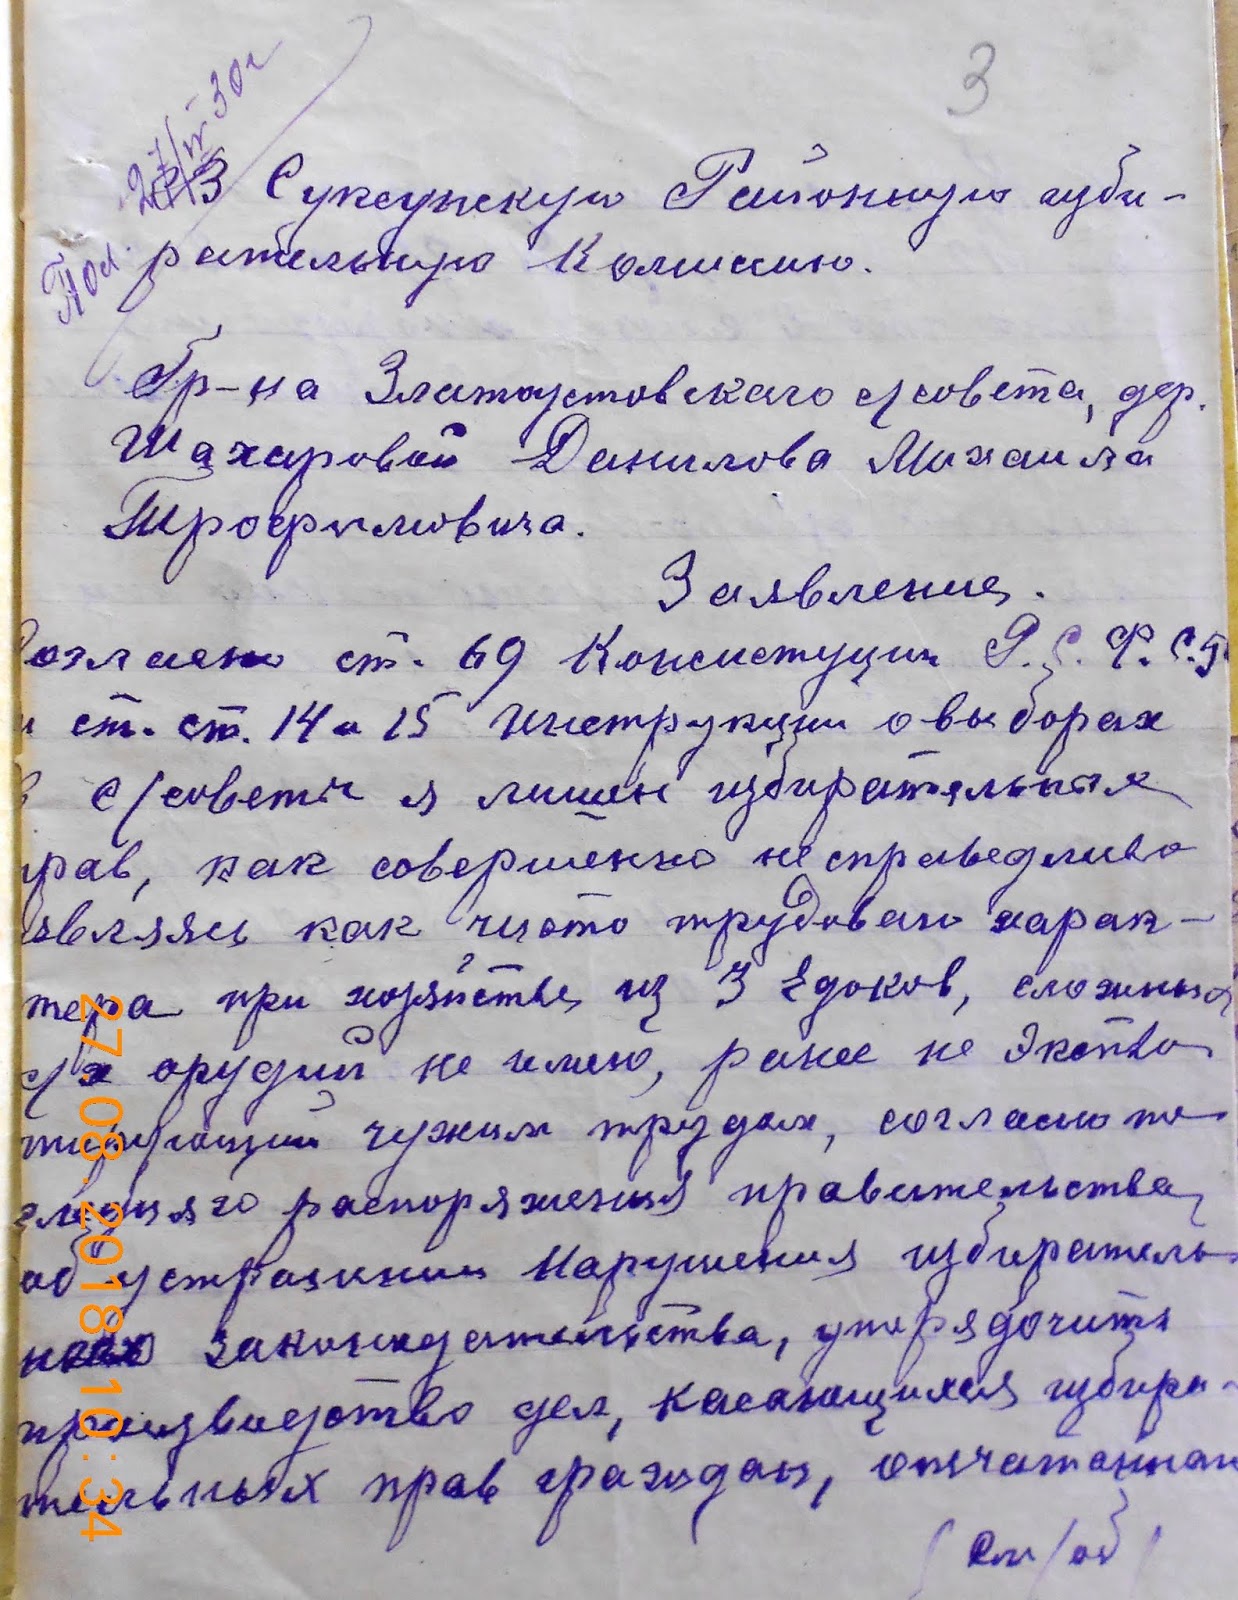 3
Пол. 27/IV 30 г
В Суксунскую Районную изби-
рательную Комиссию.
Гр-на Златоустовского с/совета, дер.
Шахаровой Данилова Михаила
Трофимовича.
Заявление.
Согласно ст. 69 Конституции Р.С.Ф.С.Р
и ст. ст. 14 и 15 инструкции о выборах
в с/советы я лишен избирательных
прав, как совершенно несправедливо
являясь как чисто трудового харак-
тера при хозяйстве из 3 едоков, сложных
с/х орудий не имею, ранее не
чужим трудом, согласно по
распоряжения правительства
об устранении нарушения избиратель
законодательства, упорядочить
производство дел, касающихся избира-
тельных прав граждан,
(см/об)
27.08.2018 10:34